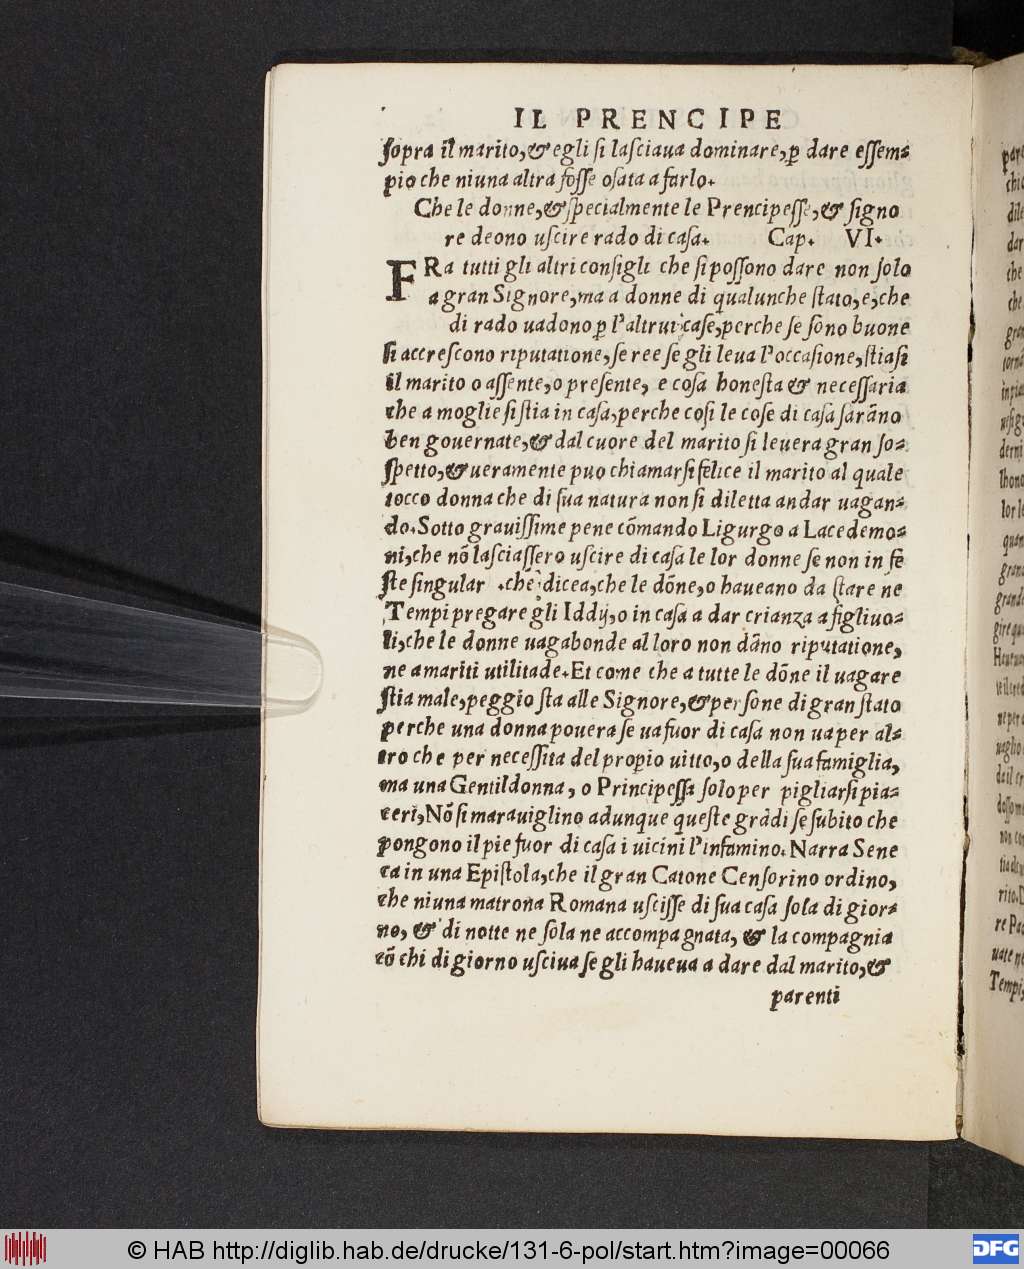 IL PRENCIPE
ſopra il marito,& egli ſi laſciaua dominare,ꝑ dare eſſem⸗
pio che niuna altra foſſe oſata a farlo.
Che le donne,& ſpecialmente le Prencipeſſe,& ſigno
re deono uſcire rado di caſa. Cap. VI.
FRa tutti gli altri conſigli che ſi poſſono dare non ſolo
a gran Signore,ma a donne di qualunche ſtato,e,che
di rado uadono ꝑ l'altrui caſe,perche ſe ſono buone
ſi accreſcono riputatione,ſe ree ſe gli leua l'occaſione,ſtiaſi
il marito o aſſente,o preſente, e coſa honeſta & neceſſaria
che a moglie ſi ſtia in caſa,perche coſi le coſe di caſa ſarāno
ben gouernate,& dal cuore del marito ſi leuera gran ſo⸗
ſpetto,& ueramente puo chiamarſi felice il marito al quale
tocco donna che di ſua natura non ſi diletta andar uagan⸗
do.Sotto grauiſſime pene cōmando Ligurgo a Lacedemo⸗
ni,che nō laſciaſſero uſcire di caſa le lor donne ſe non in fe
ſte ſingular .che dicea,che le dōne,o haueano da ſtare ne
Tempi pregare gli Iddij,o in caſa a dar crianza a figliuo⸗
li,che le donne uagabonde al loro non dāno riputatione,
ne a mariti utilitade.Et come che a tutte le dōne il uagare
ſtia male,peggio ſta alle Signore,& perſone di gran ſtato
perche una donna pouera ſe ua fuor di caſa non ua per al⸗
tro che per neceſſita del proprio uitto,o della ſua famiglia,
ma una Gentildonna, o Principeſſa ſolo per pigliarſi pia⸗
ceri,Nō ſi marauiglino adunque queſte grādi ſe ſubito che
pongono il pie fuor di caſa i uicini l'infamino.Narra Sene
ca in una Epiſtola,che il gran Catone Cenſorino ordino,
che niuna matrona Romana uſciſſe di ſua caſa ſola di gior⸗
no, & di notte ne ſola ne accompagnata, & la compagnia
cō chi di giorno uſciua ſe gli haueua a dare dal marito,&
parenti
© HAB http://diglib.hab.de/drucke/131-6-pol/start.htm?image=00066
DFG